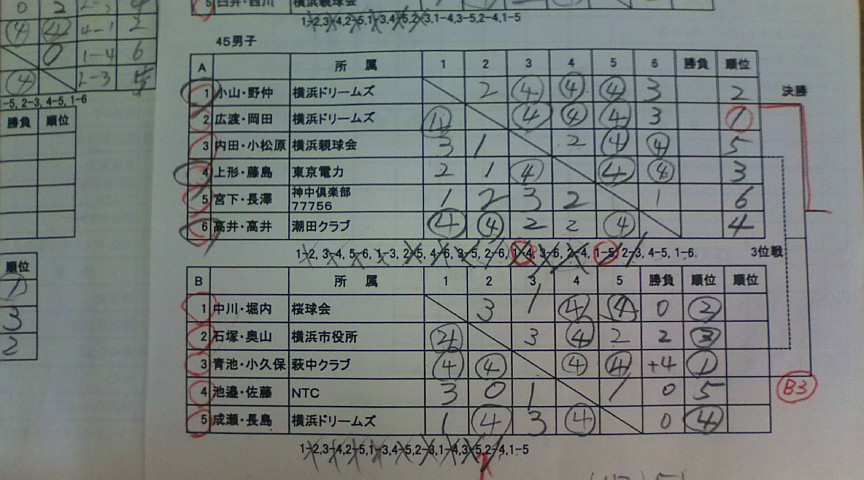 5 白井・西川 横浜親球会
1-2,3-4,2-5,1-3,4-5,2-3,1-4,3-5,2-4,1-5
0 2 2-3
④ ④ 4-1 2
0 1-4 6
④ 2-3
-5, 2-3, 4-5, 1-6
45男子
A 所 属 1 2 3 4 5 6 勝負 順位
1 小山・野仲 横浜ドリームズ 2 ④ ④ ④ 3 2
決勝
2 広渡・岡田 横浜ドリームズ ④ ④ ④ ④ 3 1
3 内田・小松原 横浜親球会 3 1 2 ④ ④ 5
4 上形・藤島 東京電力 2 1 ④ ④ ④ 3
5 宮下・長澤 神中倶楽部 77756 1 2 3 2 1 6
6 高井・高井 潮田クラブ ④ ④ 2 2 ④ 4
1-2, 3-4, 5-6, 1-3, 2-5, 4-6, 3-5, 2-6, 1-4, 3-6, 2-4, 1-5, 2-3, 4-5, 1-6
3位戦
B 所 属 1 2 3 4 5 勝負 順位
1 中川・堀内 桜球会 3 1 ④ ④ 0 ②
2 石塚・奥山 横浜市役所 ④ 3 ④ 2 2 ③
3 青池・小久保 萩中クラブ ④ ④ ④ ④ +4 ①
4 池邉・佐藤 NTC 3 0 1 1 0 5
B3
5 成瀬・長島 横浜ドリームズ 1 ④ 3 ④ 0 ④
1-2,3-4,2-5,1-3,4-5,2-3,1-4,3-5,2-4,1-5
勝負 順位
順位
1
3
2